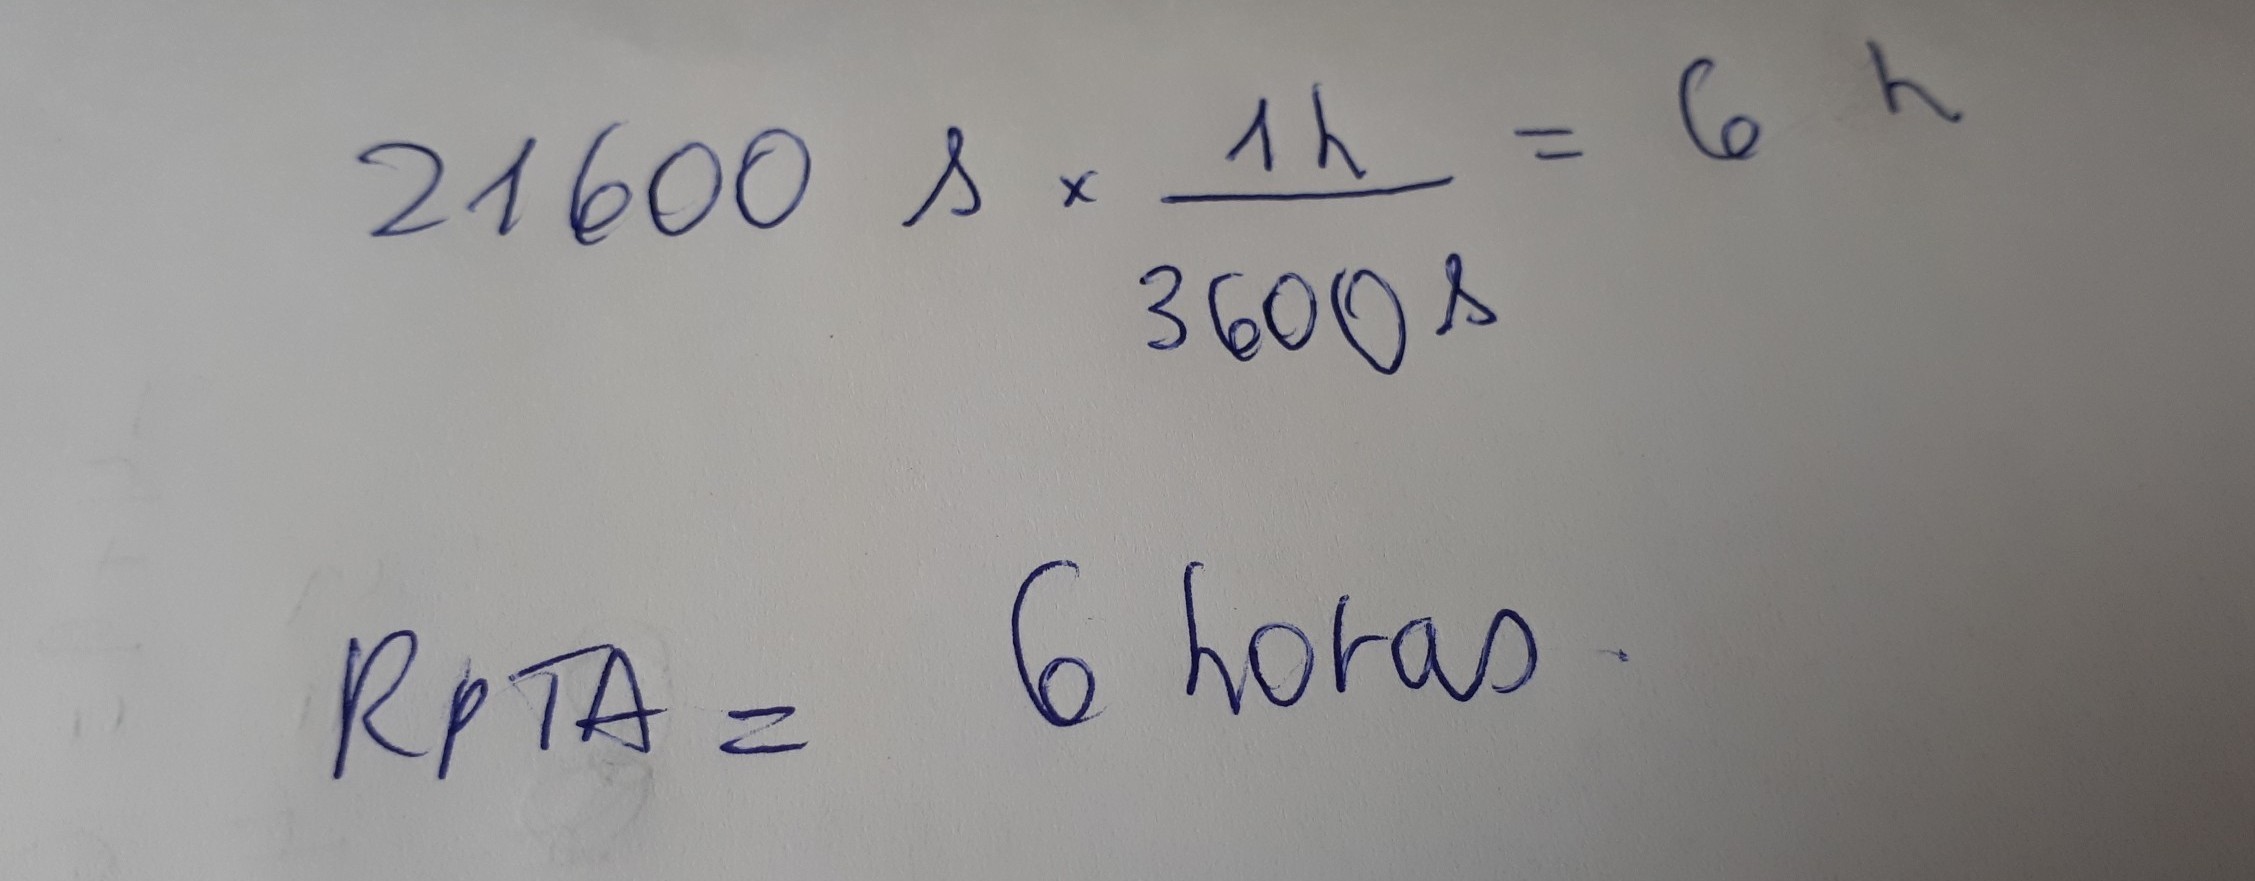 21600 s × 1h / 3600 s = 6 h
RpTA = 6 horas.